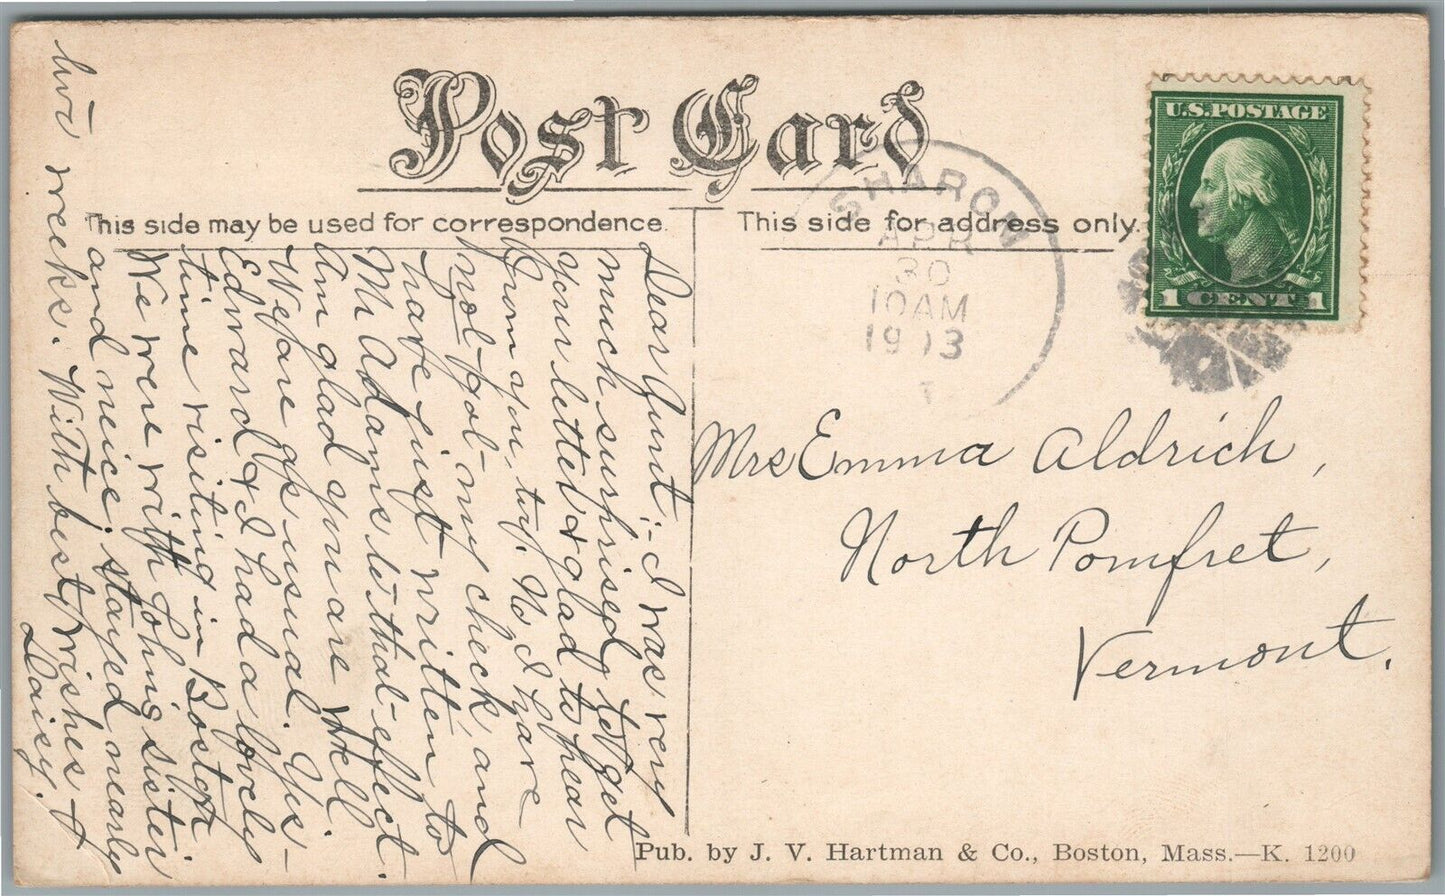 Post Card
This side may be used for correspondence.
This side for address only.
U.S. POSTAGE
1 CENT 1
SHARON
APR
30
10 AM
19 13
Mrs Emma Aldrich,
North Pomfret,
Vermont.
Dear Aunt :- I was very
much surprised to get
your letter & glad to hear
from you, too. No I have
not got my check, and
have just written to
M Adams to that effect.
Am glad you are well
We are as usual. Yes -
Edward & I had a lovely
time visiting in Boston
We were with John's sister
and neice. stayed nearly
two weeks. With best wishes &
Daisy.
Pub. by J. V. Hartman & Co., Boston, Mass.—K. 1200